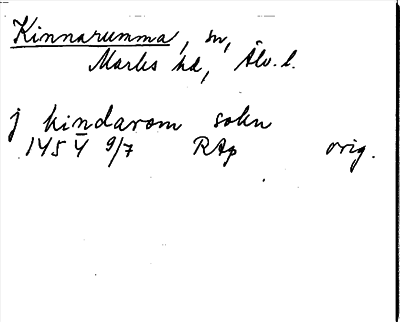 Kinnarumma, sn,
Marks hd, Älv. l.
j kindarom sokn
1454 9/7 RAp orig.